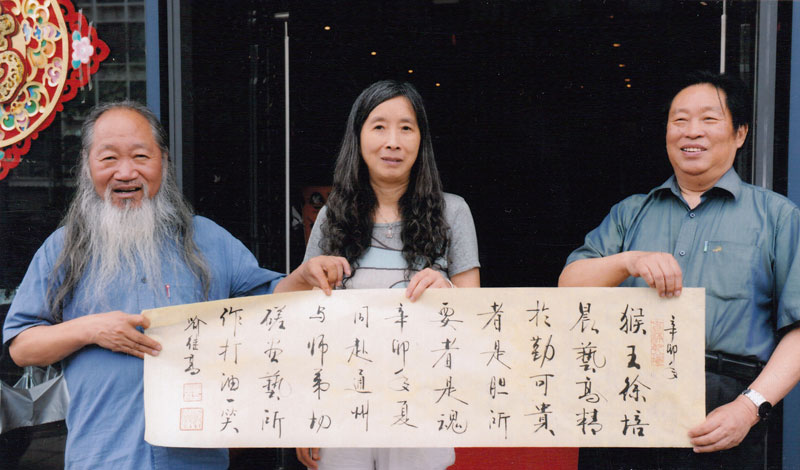 辛卯夏
猴王徐培
晨藝高精
於勤可貴
者是胆所
要者是魂
辛卯之夏
同赴通州
与師弟切
磋尝藝所
作打油一笑
喻继高